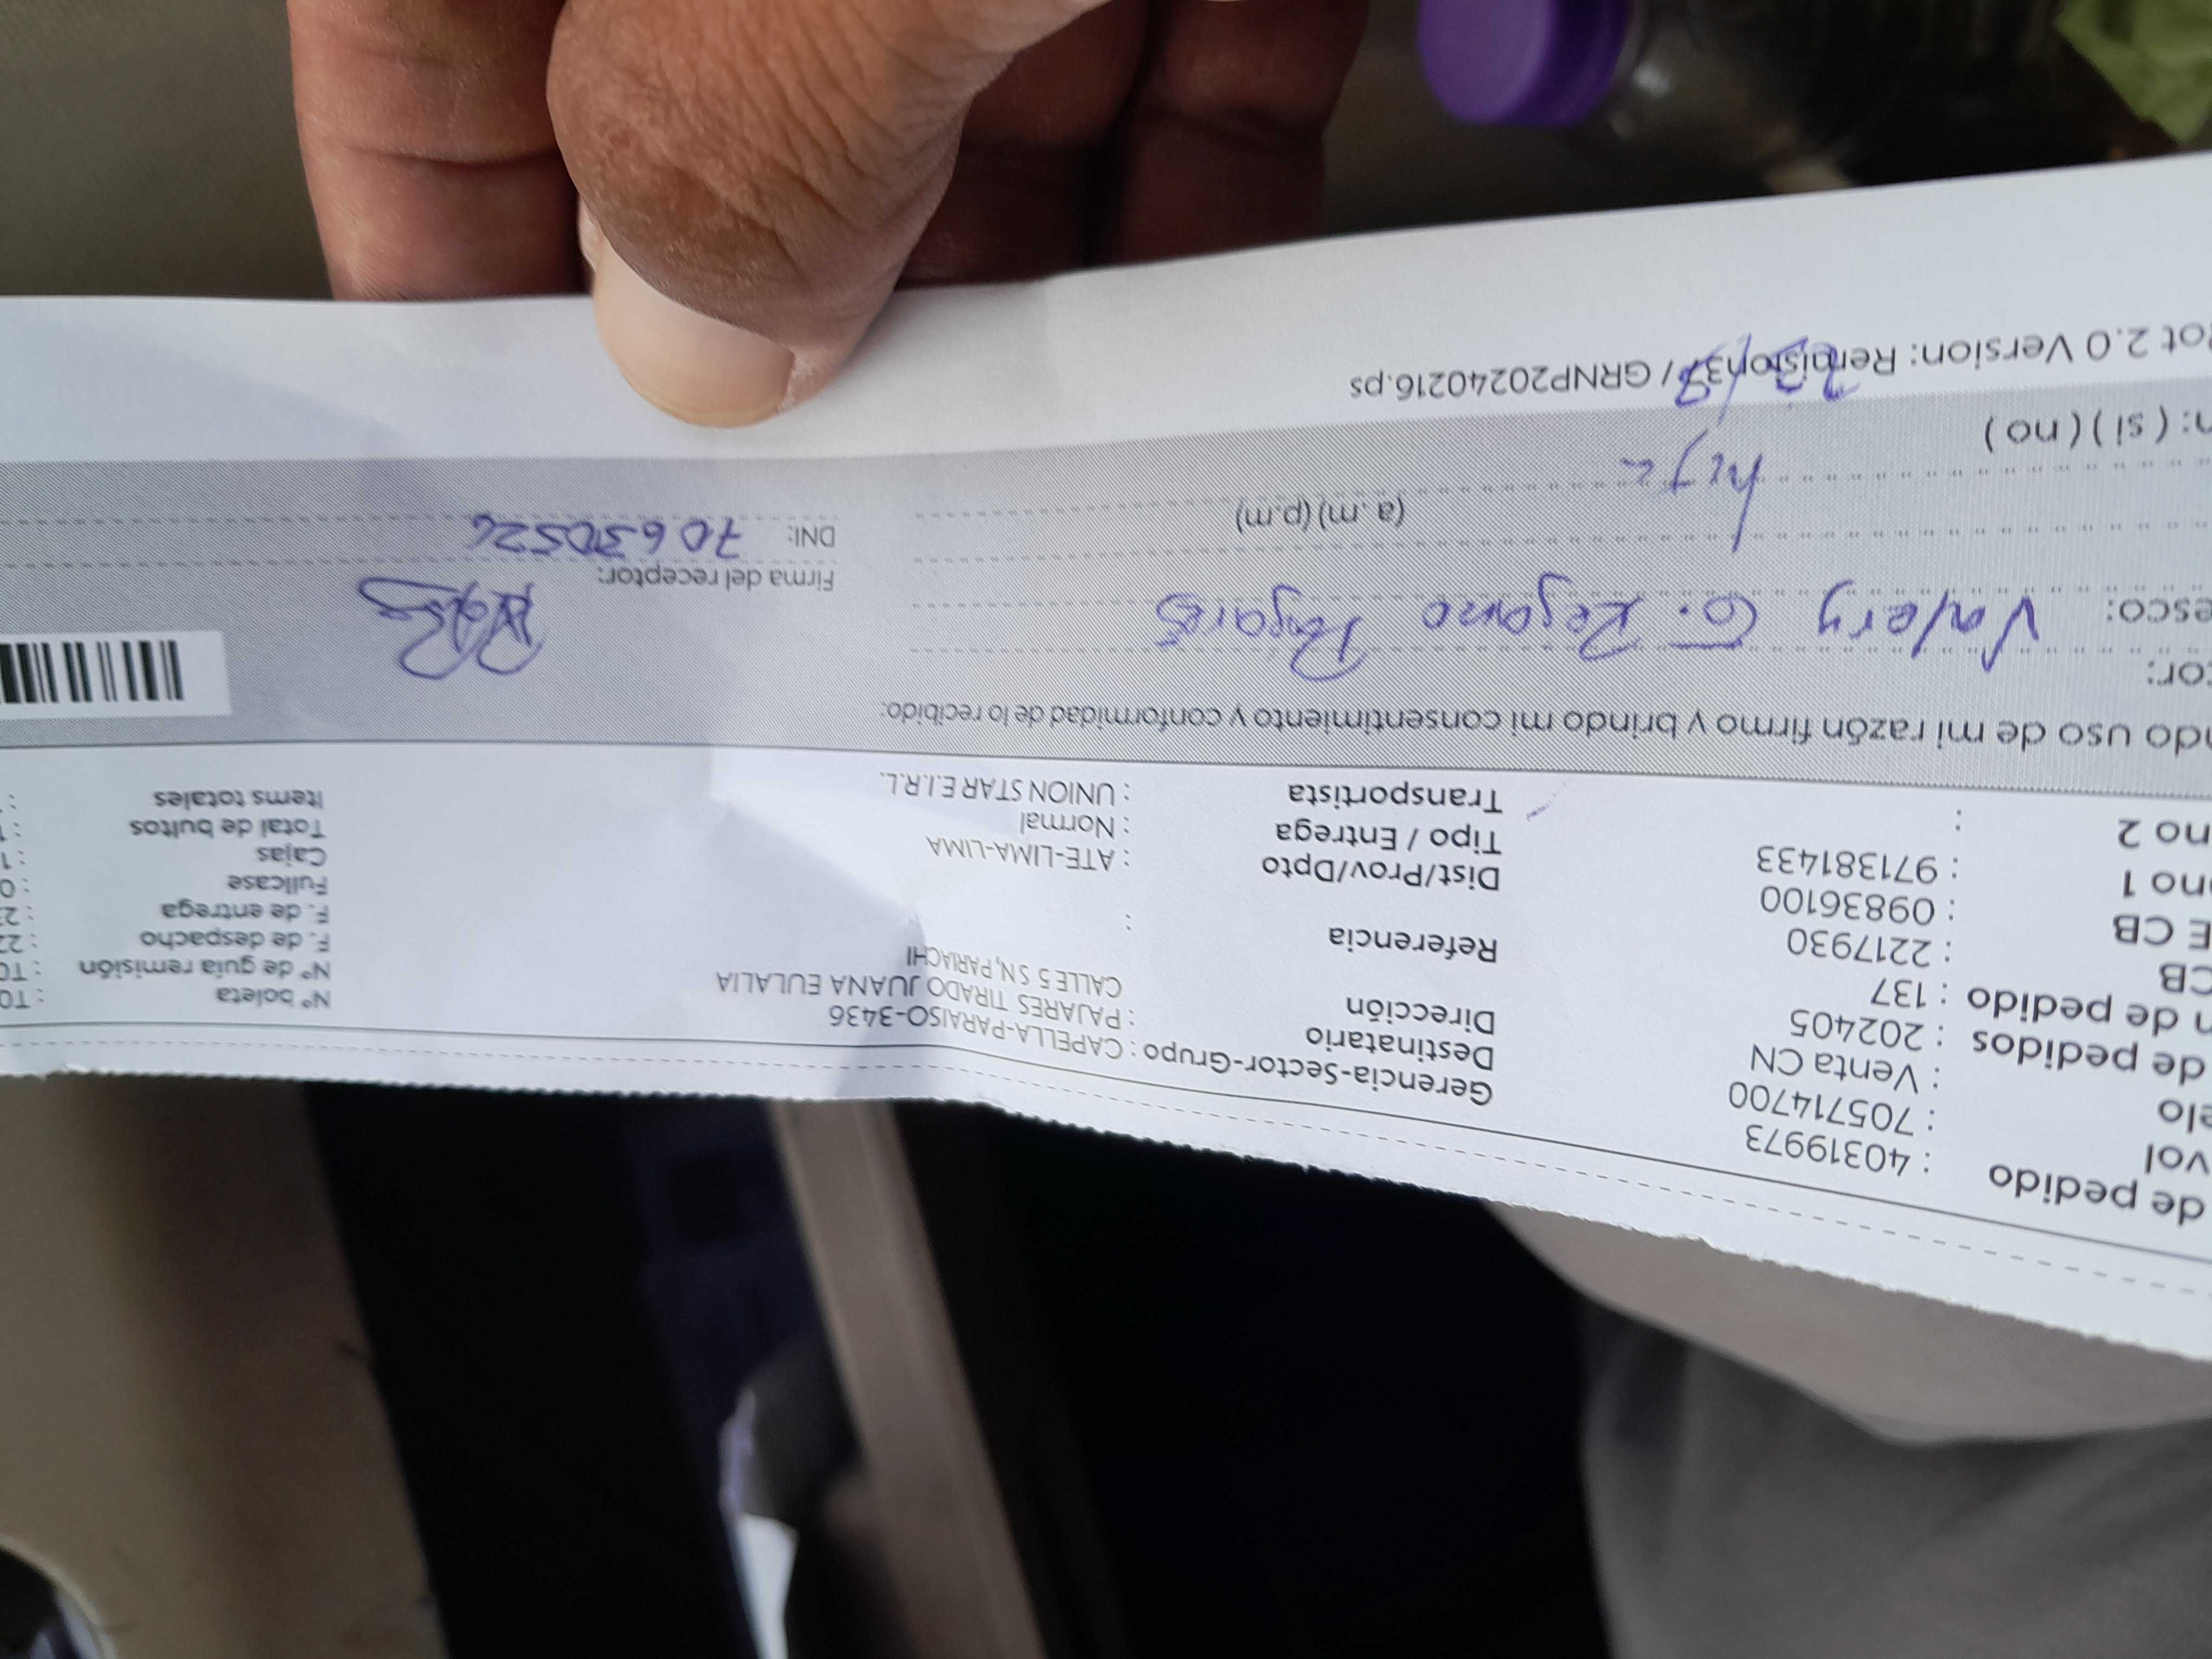 de pedido : 40319973
vol : 705714700
elo : Venta CN
de pedidos : 202405
n de pedido : 137
CB : 2217930
E CB : 09836100
no 1 : 971381433
no 2 :
Gerencia-Sector-Grupo : CAPELLA-PARAISO-3436
Destinatario : PAJARES TIRADO JUANA EULALIA
Dirección CALLE 5 SN, PARIACHI
Referencia :
Dist/Prov/Dpto : ATE-LIMA-LIMA
Tipo / Entrega : Normal
Transportista : UNION STAR E.I.R.L.
N° boleta : T0
N° de guia remisión : T0
F. de despacho : 22
F. de entrega : 23
Fullcase : 0
Cajas : 1
Total de bultos : 1
Items totales :
ndo uso de mi razón firmo y brindo mi consentimiento y conformidad de lo recibido:
tor: Valery G. Pajares
esco: hija
(a. m) (p.m)
Firma del receptor:
DNI: 70630526
n: ( si ) ( no )
ot 2.0 Version: Remision37 / GRNP20240216.ps